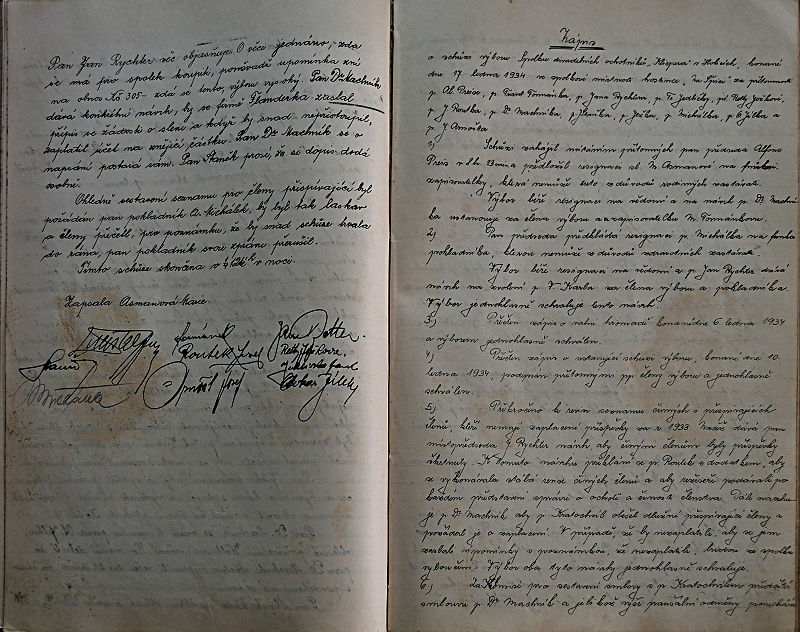 Pan Jan Rychler věc objasňuje. O věci jednáno, zda
se má pro spolek koupit, poněvadž upomínka zní
na obnos Kč 305.- zdá se tento výboru vysoký. Pan Dr Machník
dává konkrétní návrh, by se firmě Štanderka zaslal
přípis se žádostí o slevu a když by snad nepřistoupil,
zaplatit účet na znějící částku. Pan Dr Machník se o
napsání postará sám. Pan Staněk prosí, že se dopis dodá
osobně.
Ohledně sestavení seznamu pro členy přispívající byl
požádán pan pokladník O. Michálek, by byl tak laskav
a členy přečetl, pro poznámku, že by snad schůze trvala
do rána, pan pokladník svou zprávu přerušil.
Tímto schůze skončena o hod v noci.
Zapsala Asmanová Marie.
Roubek Josef
Zápis
o schůzi výboru Spolku divadelních ochotníků, konané
dne 17. ledna 1934 ve spolkové místnosti hostince za přítomnosti
p. Al. Preise, p. Tománka, p. Jana Rychlera, p. Fr. Jedličky,
p. J. Roubka, p. Dr Machníka, p. p. p. Michálka, p. O. Jílka a
p. J.
1) Schůzi zahájil uvítáním přítomných pan předseda Alfons
Preis v 8 h. 13 min a předložil resignaci sl. M. Asmanové na funkci
zapisovatelky, která nemůže tuto z důvodů rodinných zastávat.
Výbor béře resignaci na vědomí a na návrh p. Dr Machní-
ka ustanovuje za člena výboru a zapisovatelku M. Tománkovou.
2) Pan předseda předkládá resignaci p. Michálka na funkci
pokladníka, kterou nemůže z důvodů zdravotních zastávat.
Výbor béře resignaci na vědomí a p. Jan Rychler dává
návrh na zvolení p. V. Karba za člena výboru a pokladníka.
Výbor jednohlasně schvaluje tento návrh.
3) Přečten zápis o valné hromadě konané dne 6. ledna 1934
a výborem jednohlasně schválen.
4) Přečten zápis o ustavující schůzi výboru, konané dne 10.
ledna 1934, podepsán přítomnými pp. členy výboru a jednohlasně
schválen.
5) Přikročeno k revisi seznamu činných i přispívajících
členů, kteří nemají zaplacené příspěvky za r. 1933. Načež dává pan
místopředseda J. Rychler návrh, aby činným členům byly příspěvky
škrtnuty. K tomuto návrhu přikloní se p. Roubek s dodatkem, aby
se vykonávala stálá revise činných členů a aby revisoři podávali po
každém představení zprávu o ochotě a činnosti členstva. Dále navrhu-
je p. Dr Machník, aby p. Kratochvíl obešel dlužné přispívající členy a
požádal je o zaplacení. V případě, že by nezaplatili, aby se jim
zaslali upomínky s poznámkou, že nezaplatí-li, budou ze spolku
vyloučeni. Výbor oba tyto návrhy jednohlasně schvaluje.
6) Za komisi pro sestavení smlouvy s p. Kratochvílem předčítá
smlouvu p. Dr Machník a jeho výši paušální odměny ponechává